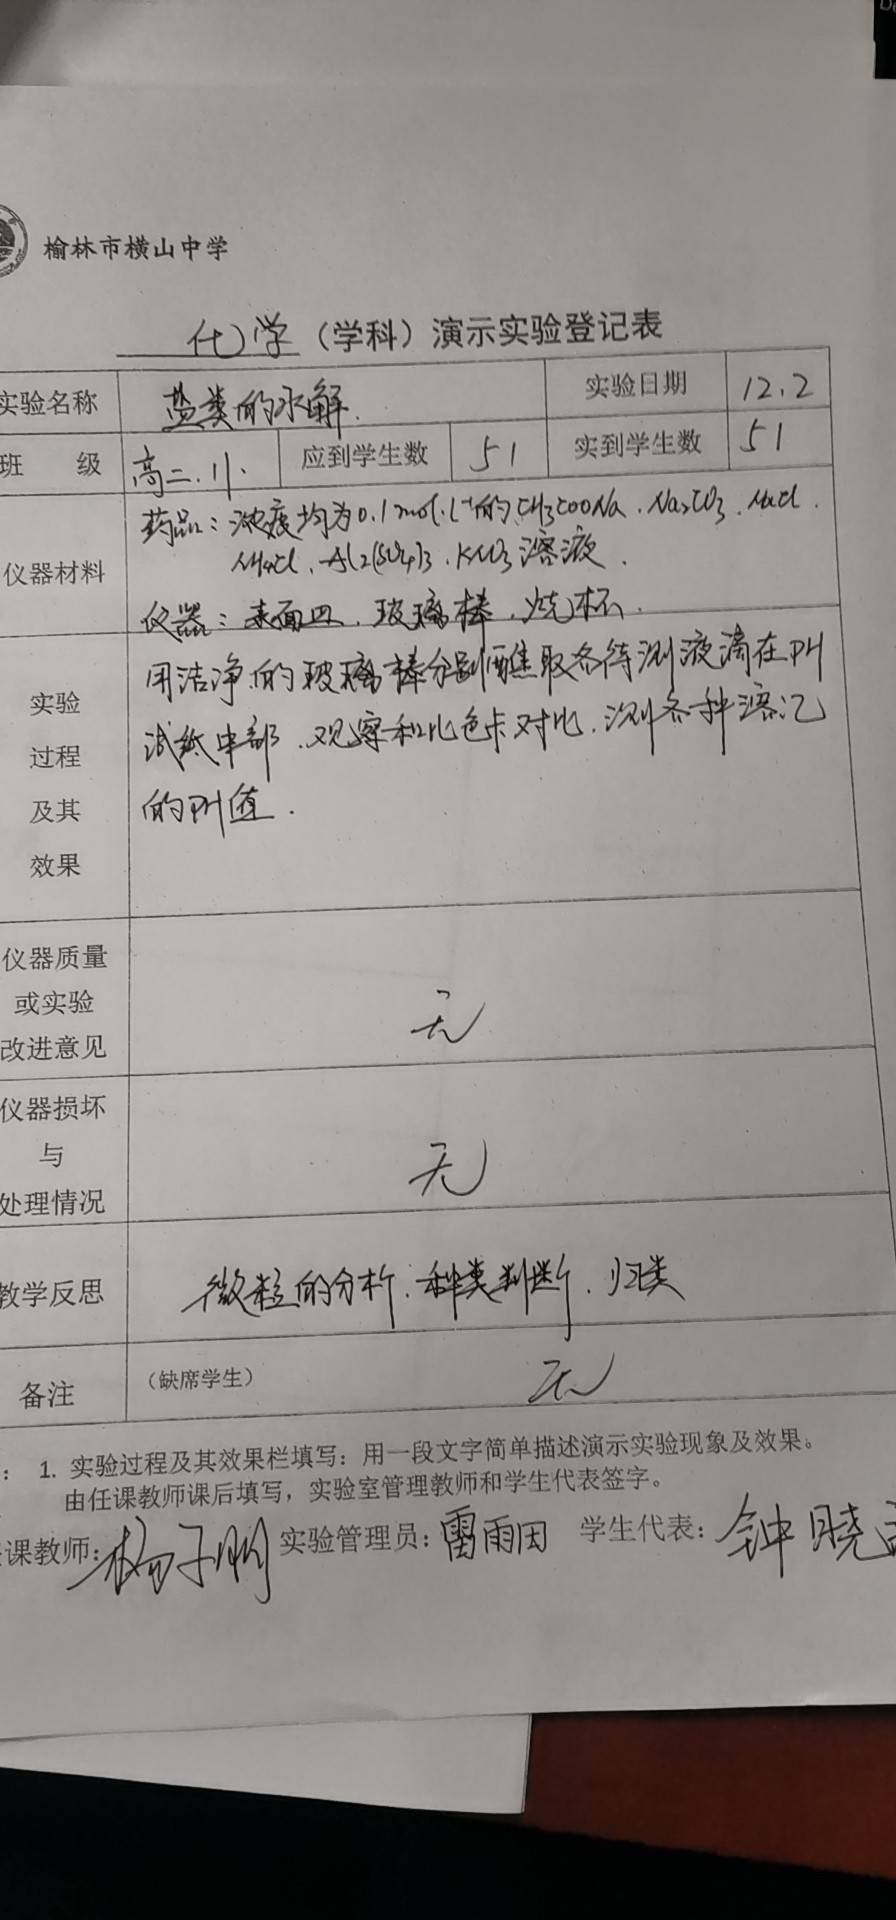 榆林市横山中学
化学（学科）演示实验登记表
实验名称 盐类的水解. 实验日期 12.2
班 级 高二. 应到学生数 51 实到学生数 51
仪器材料
药品：浓度均为0.1mol·L⁻¹的CH3COONa、Na2CO3、NaCl、
NH4Cl、Al2(SO4)3、KNO3溶液.
仪器：表面皿、玻璃棒、烧杯.
实验
过程
及其
效果
用洁净的玻璃棒分别醮取各待测液滴在PH
试纸中部、观察和比色卡对比、测各种溶液
的PH值.
仪器质量
或实验
改进意见
无
仪器损坏
与
处理情况
无
教学反思 微粒的分析、种类判断、归类
备注 （缺席学生） 无
： 1. 实验过程及其效果栏填写：用一段文字简单描述演示实验现象及效果。
由任课教师课后填写，实验室管理教师和学生代表签字。
课教师：杨子明 实验管理员：雷雨田 学生代表：钟晓